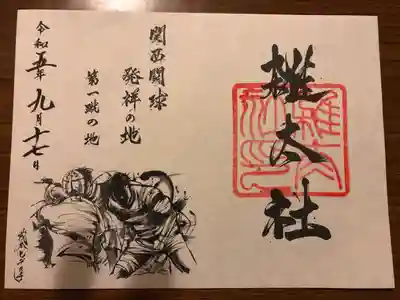 雜太社
関西闘球
発祥の地
第一蹴の地
令和五年九月十七日